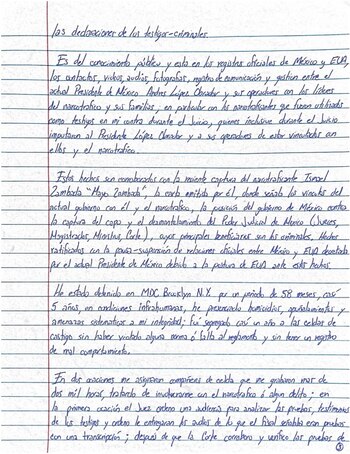 las declaraciones de los testigos-criminales
Es del conocimiento público y esta en los registros oficiales de México y EUA,
los contactos, videos, audios, fotografias, registro de comunicación y gestion entre el
actual Presidente de México Andres López Obrador y sus operadores con los líderes
del narcotrafico y sus familias, en particular con los narcotraficantes que fueron utilizados
como testigos en mi contra durante el Juicio, quienes inclusive durante el Juicio
imputaron al Presidente López Obrador y a sus operadores de estar vinculados con
ellos y el narcotrafico.
Estos hechos son corroborados con la reciente captura del narcotraficante Ismael
Zambada "Mayo Zambada", la carta emitida por él, donde señala los vinculos del
actual gobierno con él y el narcotrafico, la posición del gobierno de México contra
la captura del capo y el desmantelamiento del Poder Judicial de Mexico (Jueces,
Magistrados, Ministros, Corte), cuyos principales beneficiarios son los criminales. Hechos
ratificados con la pausa-suspensión de relaciones oficiales entre México y EUA decretada
por el actual Presidente de México debido a la postura de EUA ante estos hechos.
He estado detenido en MDC Brooklyn N.Y. por un periodo de 58 meses, casi
5 años, en condiciones infrahumanas, he presenciado homicidios, apuñalamientos y
amenazas sistematicas a mi integridad; fui segregado casi un año a las celdas de
castigo sin haber violado alguna norma ó falta al reglamento y sin tener un registro
de mal comportamiento.
En dos ocasiones me asignaron compañeros de celda que me grabaron mas de
dos mil horas, tratando de involucrarme con el narcotrafico ó algun delito; en
la primera ocasión el Juez ordeno una audiencia para analizar las pruebas, testimonios
de los testigos y ordeno le entregaran los audios de lo que el fiscal señalaba eran pruebas
con una transcripción; despues de que la Corte corroboro y verifico las pruebas de
③